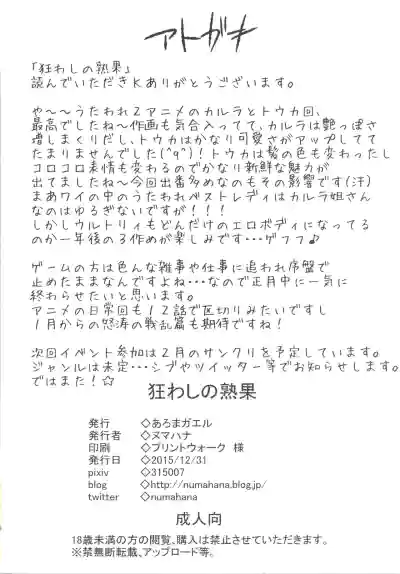 アトガキ
「狂わしの熟果」
読んでいただきありがとうございます。
や〜〜うたわれ2アニメのカルラとトウカ回、
最高でしたね〜作画も気合入ってて、カルラは艶っぽさ
増しまくりだし、トウカはかなり可愛さがアップしてて
たまりませんでした(^q^)!トウカは髪の色も変わったし
コロコロ表情も変わるのでかなり新鮮な魅力が
出てましたね〜今回出番多めなのもその影響です(汗)
まあワイの中のうたわれベストレディはカルラ姉さん
なのはゆるぎないですが!!!
しかしウルトリィもどんだけのエロボディになってる
のか一年後の3作めが楽しみです…ゲフフ♪
ゲームの方は色んな雑事や仕事に追われ序盤で
止めたままなんですよね…なので正月中に一気に
終わらせたいと思います。
アニメの日常回も12話で区切りみたいですし
1月からの怒涛の戦乱篇も期待ですね!
次回イベント参加は2月のサンクリを予定しています。
ジャンルは未定…シブやツイッター等でお知らせします。
ではまた!☆
狂わしの熟果
発行 ◇あろまガエル
発行者 ◇ヌマハナ
印刷 ◇プリントウォーク 様
発行日 ◇2015/12/31
pixiv ◇315007
blog ◇http://numahana.blog.jp/
twitter ◇numahana
成人向
18歳未満の方の閲覧、購入は禁止させていただきます。
※禁無断転載、アップロード等。